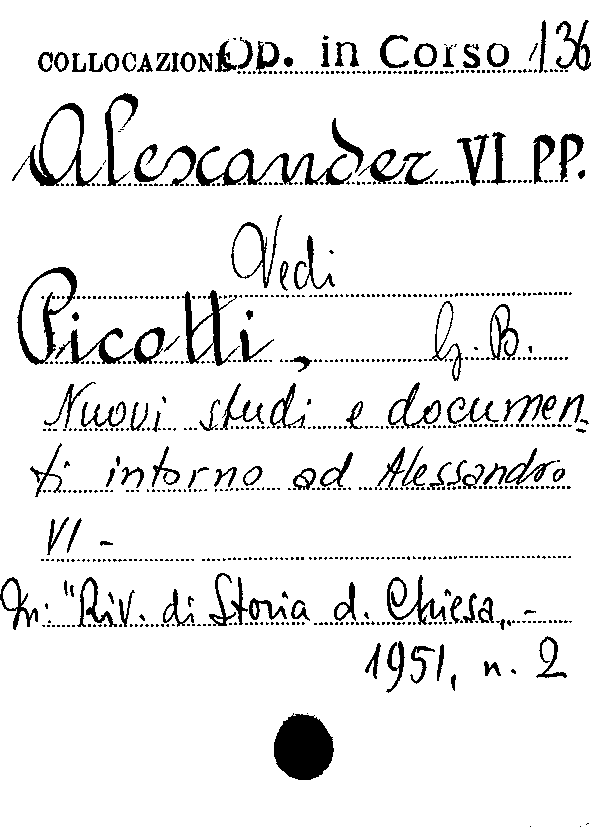 COLLOCAZIONE Op. in Corso 136
Alexander VI PP.
Vedi
Picotti, G. B.
Nuovi studi e documen=
ti intorno ad Alessandro
VI -
In: "Riv. di Storia d. Chiesa„ -
1951, n. 2